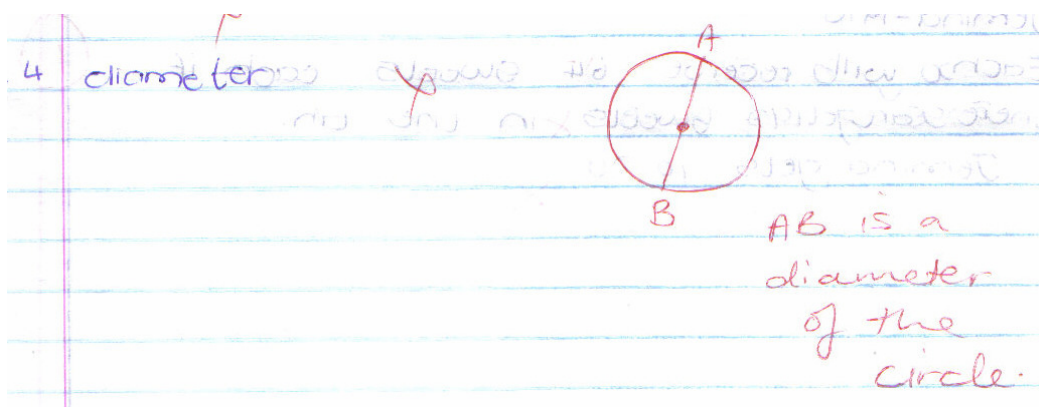 4 diameter
A
B
AB is a
diameter
of the
circle.